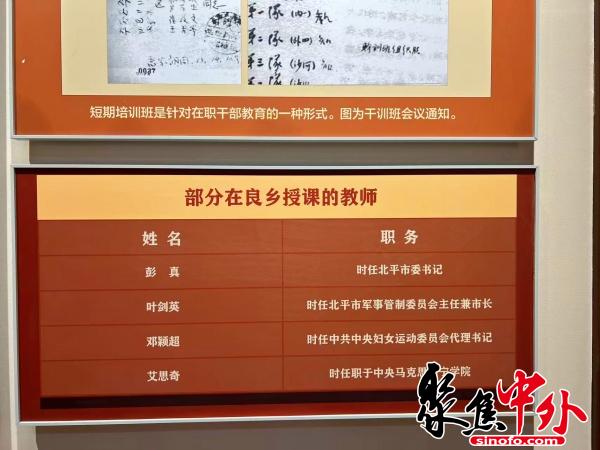 0987
第一隊
第二隊
第三隊
短期培训班是针对在职干部教育的一种形式。图为干训班会议通知。
部分在良乡授课的教师
姓 名 职 务
彭 真 时任北平市委书记
叶剑英 时任北平市军事管制委员会主任兼市长
邓颖超 时任中共中央妇女运动委员会代理书记
艾思奇 时任职于中央马克思 学院
聚焦中外
sinofo.com